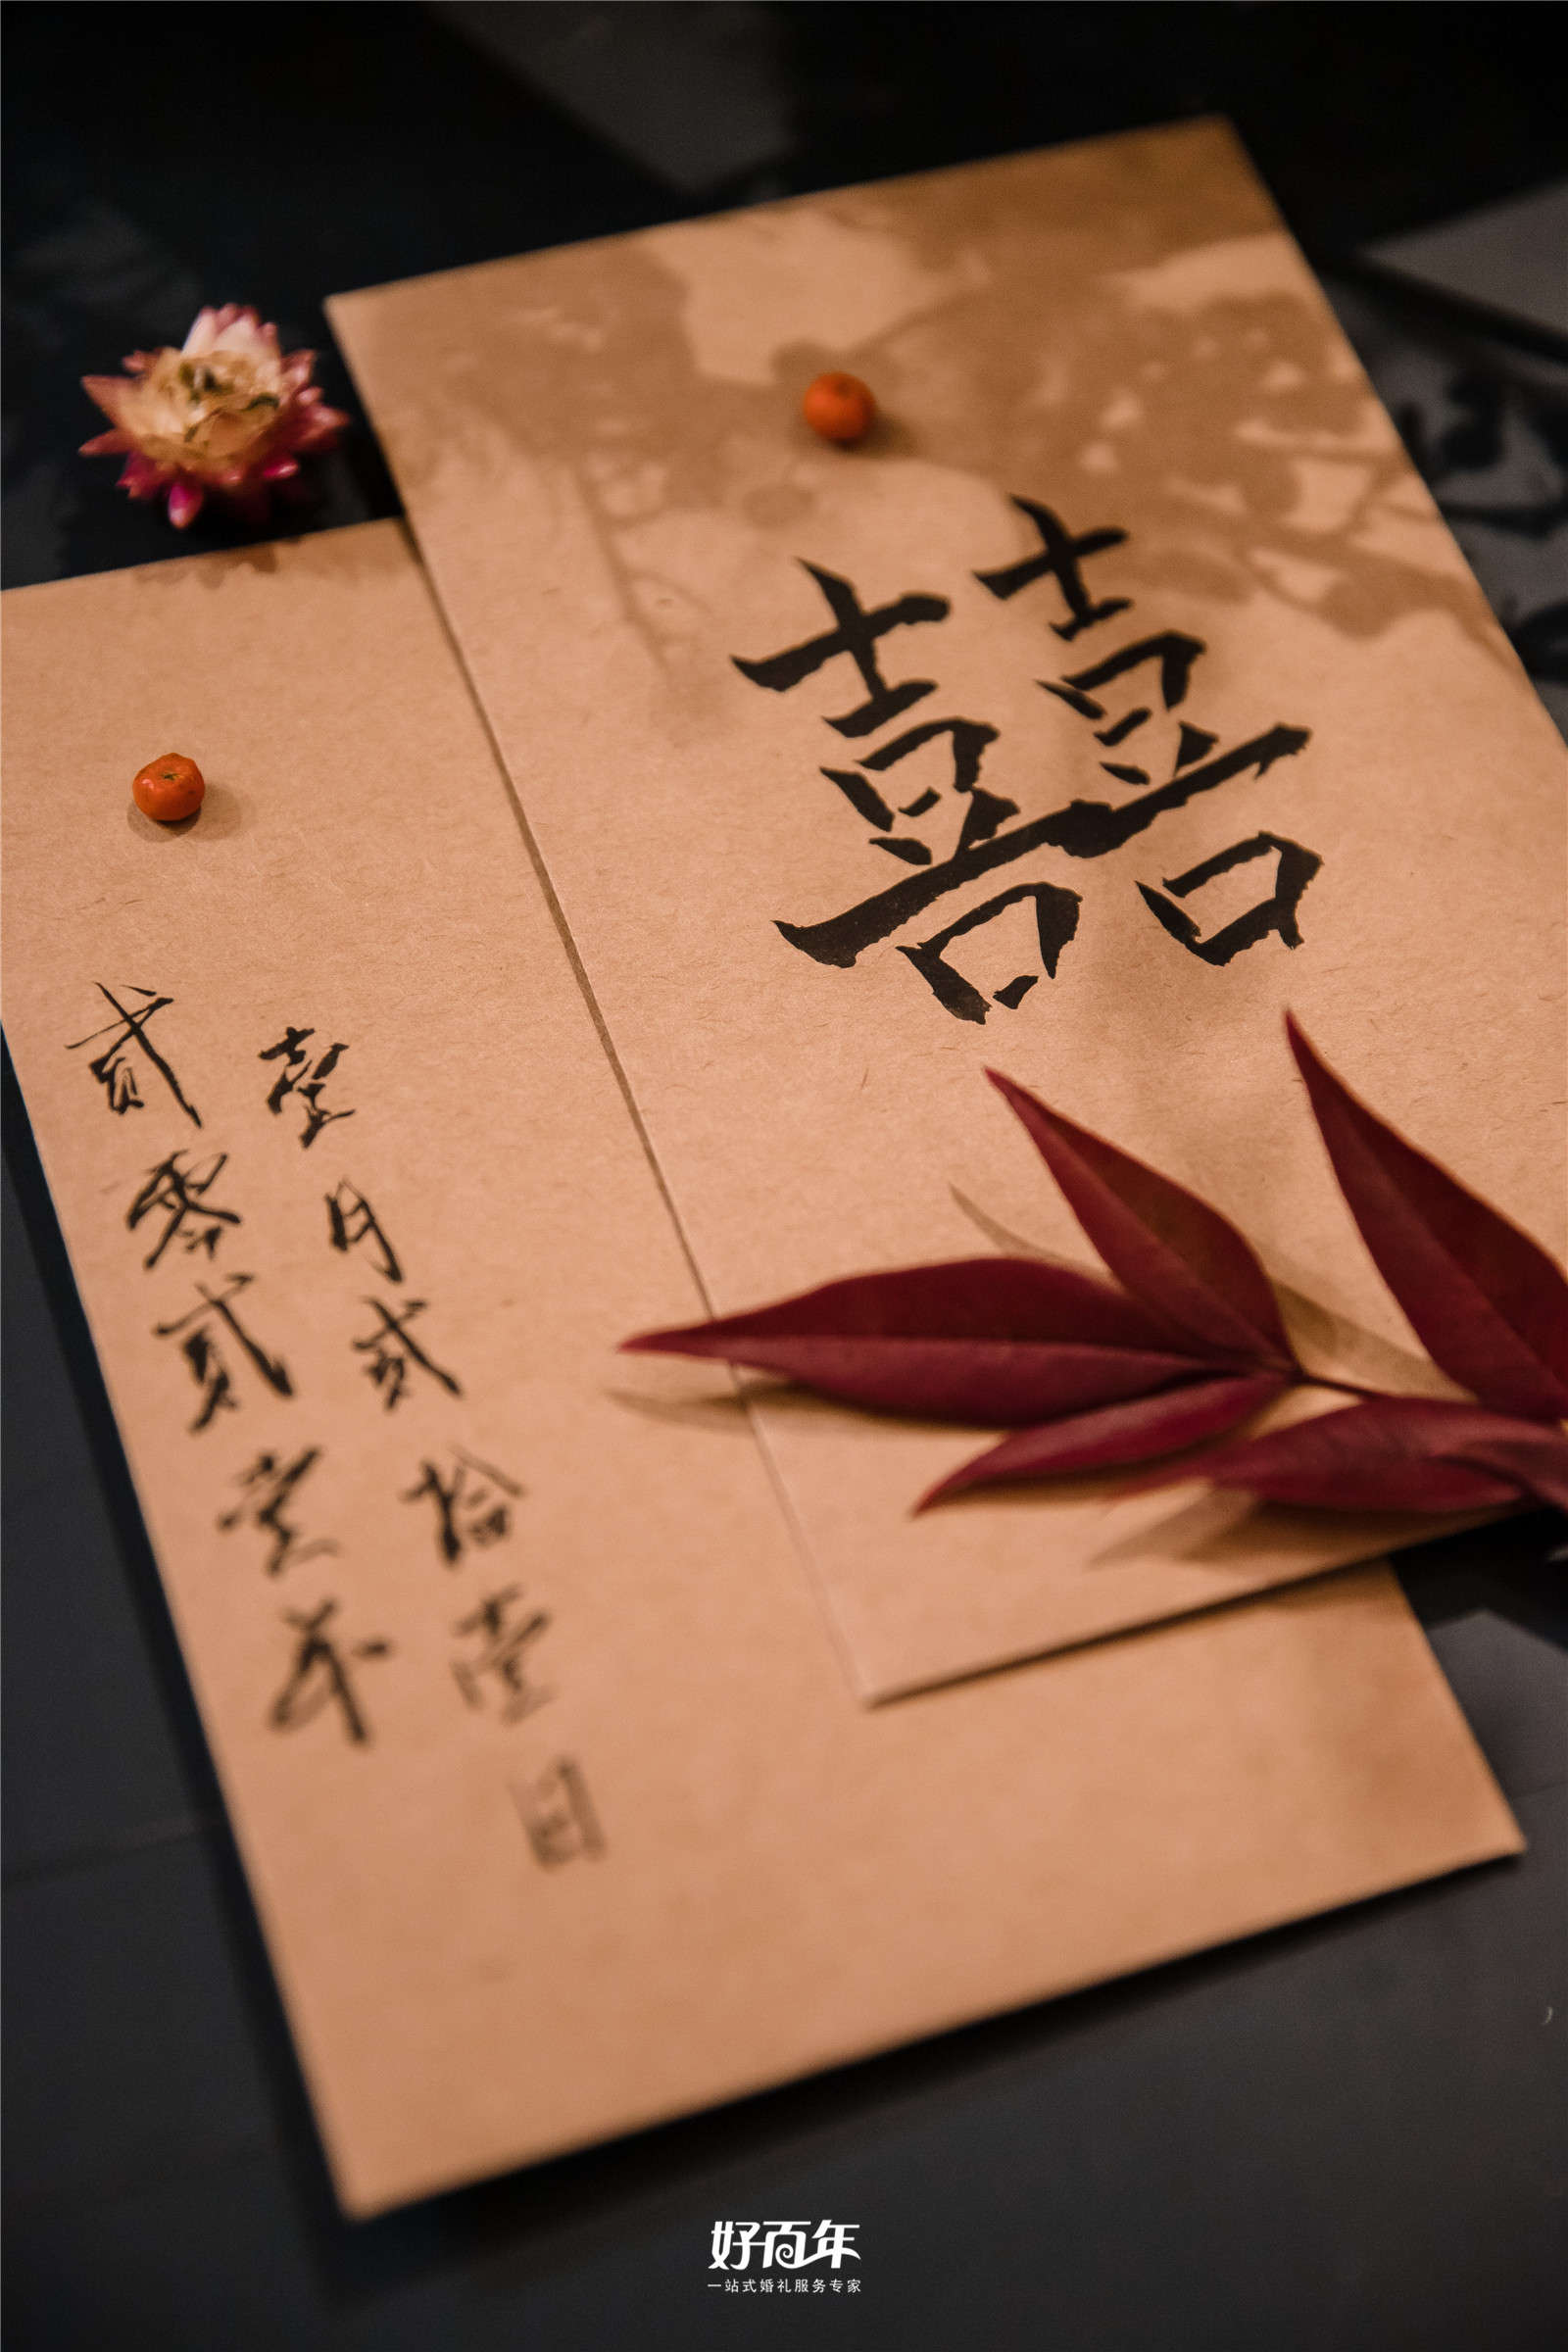 囍
贰零贰壹年
壹月贰拾壹日
好百年
一站式婚礼服务专家